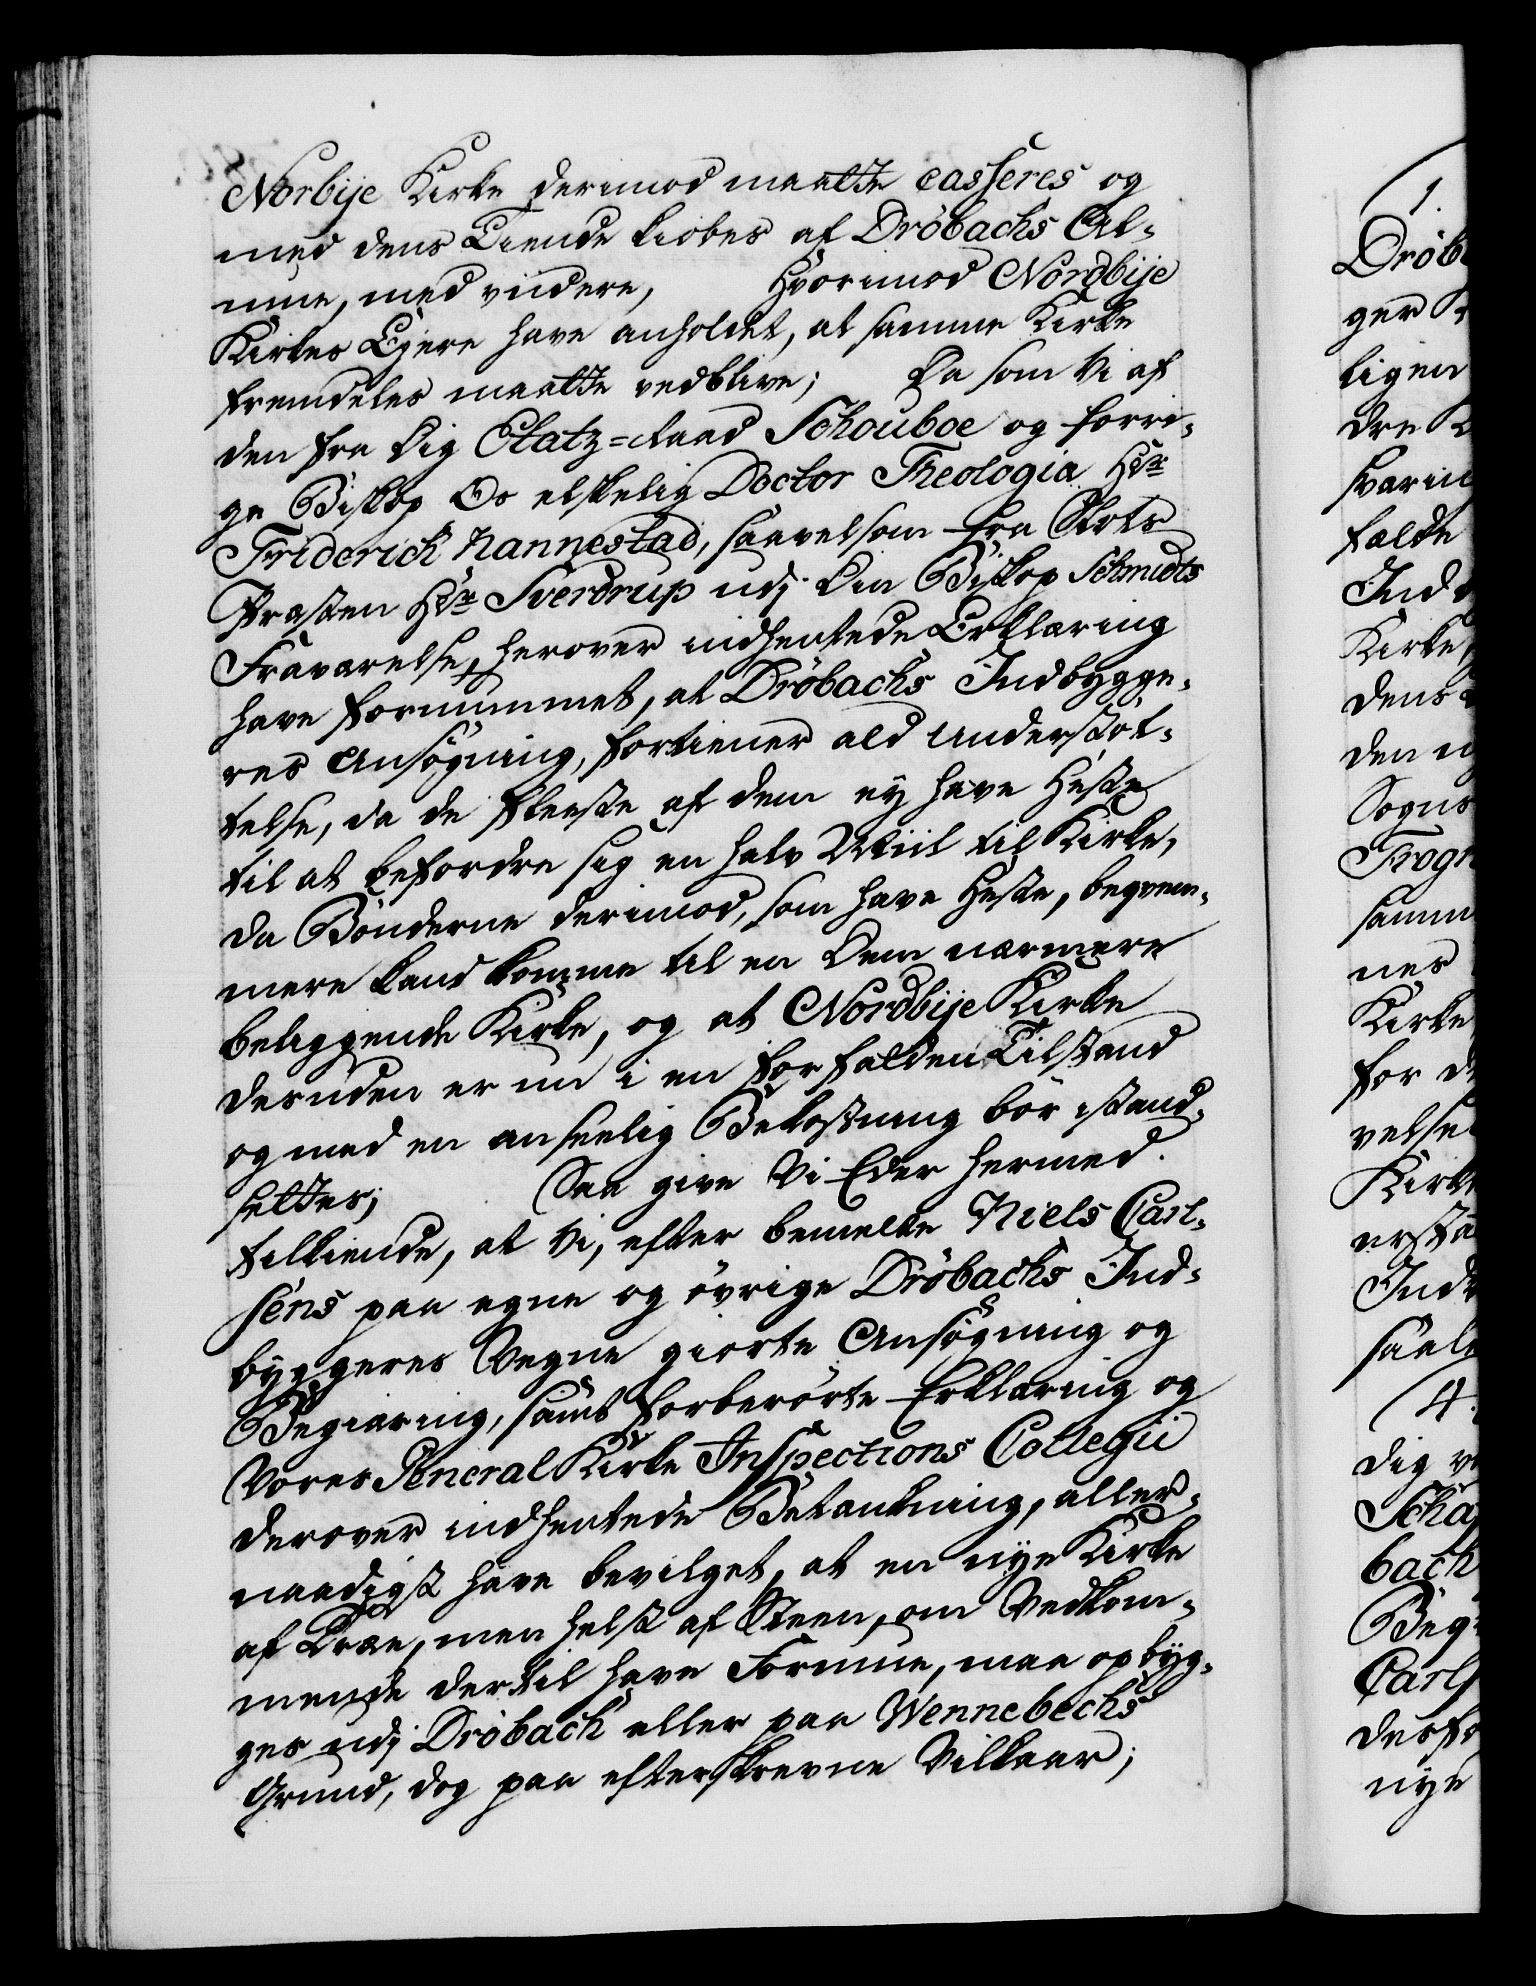 Norbije Kirke derimod maatte casseres og
med dens Tiende kiöbes af Dröbachs Al-
mue, med videre, Hvorimod Nordbije
Kirkes Ejere have anholdet, at samme Kirke
fremdeles maatte vedblive; Da som Vi af
den fra dig Etatz-Raad Schouboe og forri-
ge Biskop Os elskelig Doctor Theologia Hr
Friderich Nannestad, saavelsom fra Slots
Præsten Hr Sverdrup udj din Biskop Schmidts
Fraværelse, herover indhentede Erklæring
have fornummet, at Dröbachs Indbygge-
res Ansögning, fortiener ald Understöt-
telse, da de fleeste af dem ey have Heste
til at befordre sig en halv Miil til Kirke,
da Bönderne derimod, som have Heste, beqvem-
mere kand komme til en Dem nærmere
beliggende Kirke, og at Nordbije Kirke
desuden er nu i en forfalden Tilstand
og med en anseelig Bekostning bör istand-
settes; Saa give Vi Eder hermed
tilkiende, at Vi, efter bemelte Niels Carl-
sens paa egne og övrige Dröbachs Ind-
byggeres Vegne giorte Ansögning og
Begiæring, samt forberörte Erklæring og
Vores General Kirke Inspections Collegii
derover indhentede Betænkning, aller-
naadigst have bevilget, at en nye Kirke
af Træe, men helst af Steen, om Vedkom-
mende dertil have Formue, maa opbyg-
ges udj Dröbach eller paa Wennebechs
Grund, dog paa efterskrevne Vilkaar;
1.
Dröb
ger
ligen
dre
svarin
falde
Ind
Kirke,
dens
den
Sogns
Frogn
samm
nes
Kirke
for d
velse
Kirk
Ind
saal
4.
dig
Scha
bach
Beg
Carls
nye